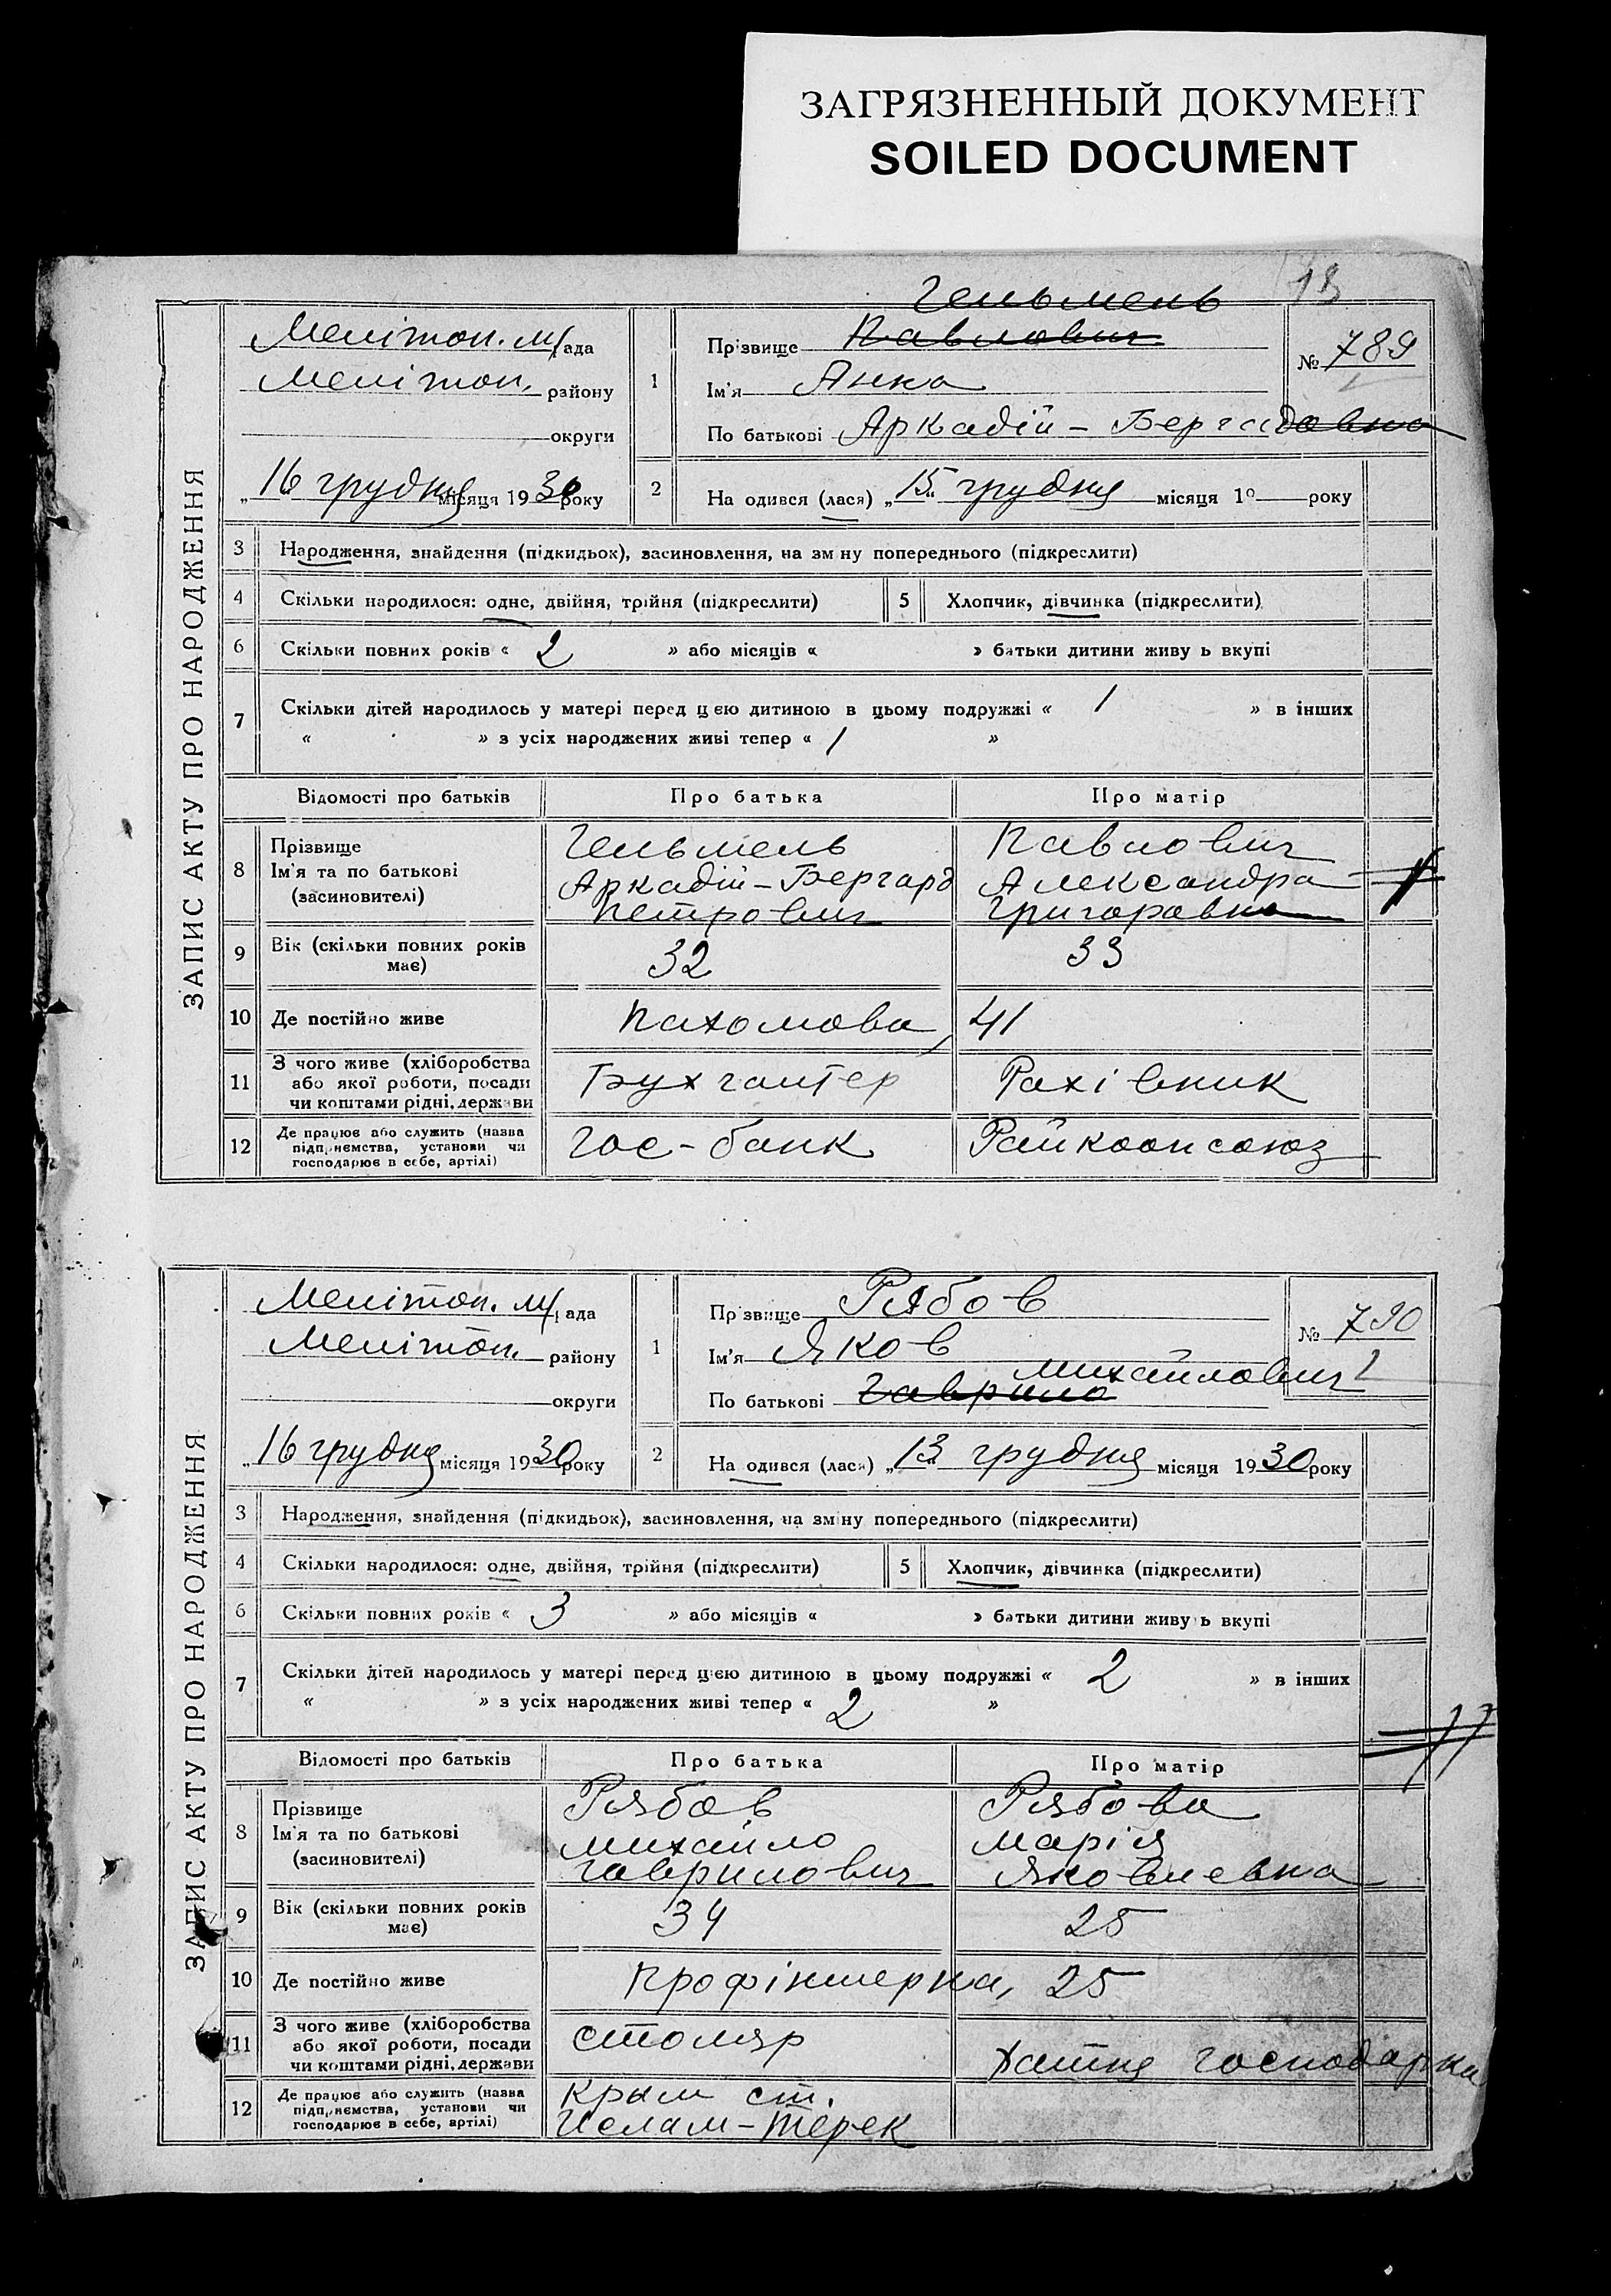 ЗАГРЯЗНЕННЫЙ ДОКУМЕНТ
SOILED DOCUMENT
13
ЗАПИС АКТУ ПРО НАРОДЖЕННЯ
Мелітоп. м/рада
Мелітоп. району
округи
„16 грудня місяця 1930 року
1
Гельмель
Прізвище Павлович
№ 789
Ім'я Анна
По батькові Аркадій-Бергардовна
2 На одився (лася) „15„ грудня місяця 19 року
3 Народження, знайдення (підкидьок), засиновлення, на зміну попереднього (підкреслити)
4 Скільки народилося: одне, двійня, трійня (підкреслити) 5 Хлопчик, дівчинка (підкреслити)
6 Скільки повних років « 2 » або місяців « » батьки дитини живу ь вкупі
7 Скільки дітей народилось у матері перед цією дитиною в цьому подружжі « 1 » в інших
« » з усіх народжених живі тепер « 1 »
Відомості про батьків Про батька Про матір
8 Прізвище Гельмель Павлович
Ім'я та по батькові Аркадій-Бергард Александра
(засиновителі) Петрович Григоравна
9 Вік (скільки повних років має) 32 33
10 Де постійно живе Пахомова, 41
11 З чого живе (хліборобства або якої роботи, посади чи коштами рідні, держави Бухгалтер Рахівник
12 Де працює або служить (назва підприємства, установи чи господарює в себе, артілі) Гос-банк Райкоопсоюз
ЗАПИС АКТУ ПРО НАРОДЖЕННЯ
Мелітоп. м/рада
Мелітоп. району
округи
„16 грудня місяця 1930 року
1 Прізвище Рябов
№ 790
Ім'я Яков
Михайлович
По батькові Гаврило
2 На одився (лася) „13„ грудня місяця 1930 року
3 Народження, знайдення (підкидьок), засиновлення, на зміну попереднього (підкреслити)
4 Скільки народилося: одне, двійня, трійня (підкреслити) 5 Хлопчик, дівчинка (підкреслити)
6 Скільки повних років « 3 » або місяців « » батьки дитини живу ь вкупі
7 Скільки дітей народилось у матері перед цією дитиною в цьому подружжі « 2 » в інших
« » з усіх народжених живі тепер « 2 »
Відомості про батьків Про батька Про матір
8 Прізвище Рябов Рябова
Ім'я та по батькові Михайло Марія
(засиновителі) Гаврилович Яковлевна
9 Вік (скільки повних років має) 34 25
10 Де постійно живе Профінтерна, 25
11 З чого живе (хліборобства або якої роботи, посади чи коштами рідні, держави столяр Хатня господарка
12 Де працює або служить (назва підприємства, установи чи господарює в себе, артілі) Крым ст.
Ислам-Терек